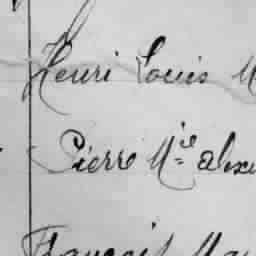 Henri Louis M
Pierre Mie alex
François Ma